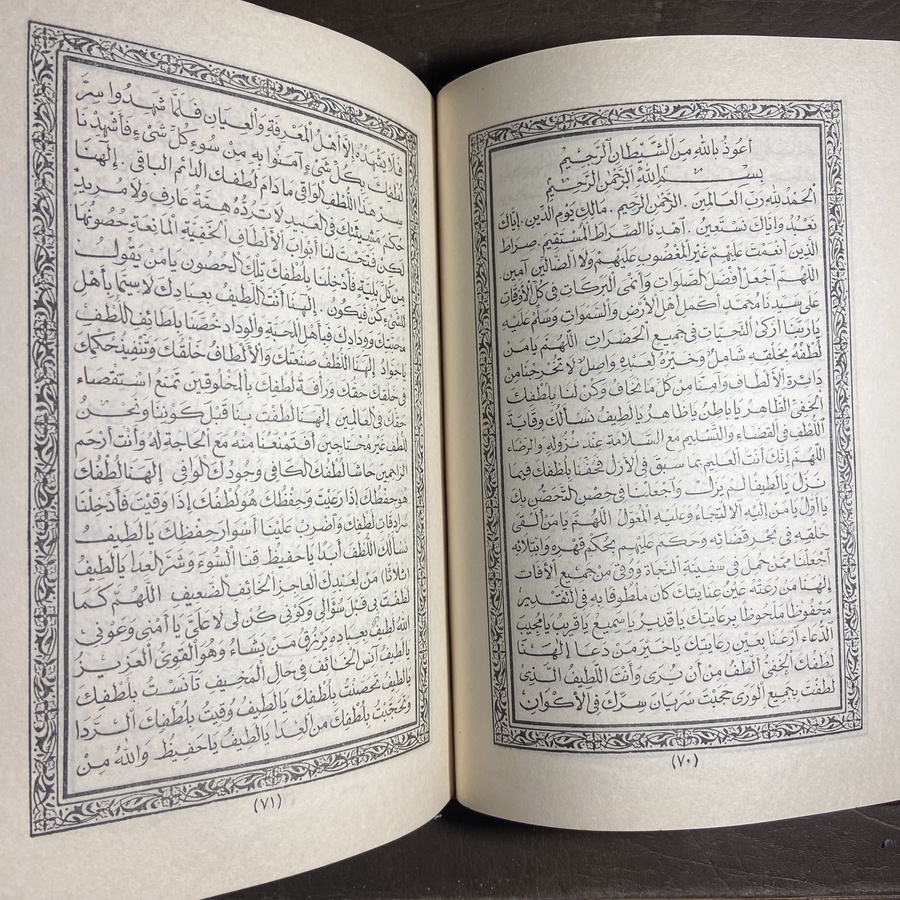 أعوذ بالله من الشيطان الرجيم
بسم الله الرحمن الرحيم
الحمد لله رب العالمين . الرحمن الرحيم . مالك يوم الدين . إياك
نعبد وإياك نستعين . اهدنا الصراط المستقيم . صراط
الذين أنعمت عليهم غير المغضوب عليهم ولا الضالين آمين .
اللهم اجعل أفضل الصلوات وأنمى البركات في كل الأوقات
على سيدنا محمد أكمل أهل الأرض والسموات وسلم عليه
يا ربنا أزكى التحيات في جميع الحضرات اللهم يا من
لطفه بخلقه شامل وخيره لعبده واصل لا تخرجنا من
دائرة الألطاف وآمنا من كل ما نخاف وكن لنا بلطفك
الخفي الظاهر يا باطن يا ظاهر يا لطيف نسألك وقاية
اللطف في القضاء والتسليم مع السلامة عند نزوله والرضاء
اللهم إنك أنت العليم بما سبق في الأزل فحفنا بلطفك فيما
نزل يا لطيفا لم يزل واجعلنا في حصن التحصن بك
يا أول يا من إليه الالتجاء وعليه المعول اللهم يا من ألقى
خلقه في بحر قضائه وحكم عليهم بحكم قهره وابتلائه
اجعلنا ممن حمل في سفينة النجاة ووقي من جميع الآفات
إلهنا من رعته عين عنايتك كان ملطوفا به في التقدير
محفوظا ملحوظا برعايتك يا قدير يا سميع يا قريب يا مجيب
الدعاء ارعنا بعين رعايتك يا خير من دعا إلهنا
لطفك الخفي ألطف من أن يرى وأنت اللطيف الذي
لطفت بجميع الورى حجبت سريان سرك في الأكوان
(٧٠)
فلا يشهده إلا أهل المعرفة والعيان فلما شهدوا سر
لطفك بكل شيء آمنوا به من سوء كل شيء فأشهدنا
سر هذا اللطف الواقي ما دام لطفك الدائم الباقي . إلهنا
حكم مشيئتك في العبيد لا ترده همة عارف ولا مريد
لكن فتحت لنا أبواب الألطاف الخفية المانعة حصونها
من كل بلية فأدخلنا بلطفك تلك الحصون يا من يقول
للشيء كن فيكون . إلهنا أنت اللطيف بعبادك لا سيما بأهل
محبتك وودادك فبأهل المحبة والوداد خصنا بلطائف اللطف
يا جواد إلهنا اللطف صفتك والألطاف خلقك وتنفيذ حكمك
في خلقك حقك ورأفة لطفك بالمخلوقين تمنع استقصاء
حقك في العالمين إلهنا لطفت بنا قبل كوننا ونحن
للطف غير محتاجين أفتمنعنا منه مع الحاجة له وأنت أرحم
الراحمين حاشا لطفك الكافي وجودك الوافي إلهنا لطفك
هو حفظك إذا رعيت وحفظك هو لطفك إذا وقيت فأدخلنا
سرادقات لطفك واضرب علينا أسوار حفظك يا لطيف
نسألك اللطف أبدا يا حفيظ قنا السوء وشر العدا يا لطيف
(ثلاثا) من لعبدك العاجز الخائف الضعيف اللهم كما
لطفت بي قبل سؤالي وكوني كن لي لا علي يا آمني وعوني
الله لطيف بعباده يرزق من يشاء وهو القوي العزيز
يا لطيف آنس الخائف في حال المخيف تأنست بلطفك
يا لطيف تحصنت بلطفك يا لطيف وقيت بلطفك الردا
وتحجبت بلطفك من العدا يا لطيف يا حفيظ والله من
(٧١)